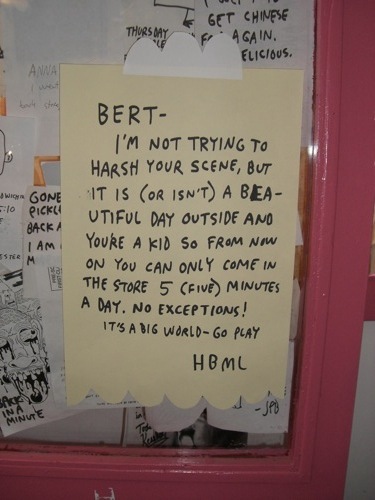 GET CHINESE
THURSDAY
FOR AGAIN.
DELICIOUS.
ANNA
BERT-
I'M NOT TRYING TO
HARSH YOUR SCENE, BUT
IT IS (OR ISN'T) A BEA-
UTIFUL DAY OUTSIDE AND
YOU'RE A KID SO FROM NOW
ON YOU CAN ONLY COME IN
THE STORE 5 (FIVE) MINUTES
A DAY. NO EXCEPTIONS!
IT'S A BIG WORLD-GO PLAY
HBML
GONE
PICKL
BACK A
I AM
M
BACK
IN A
MINUTE
-JPB